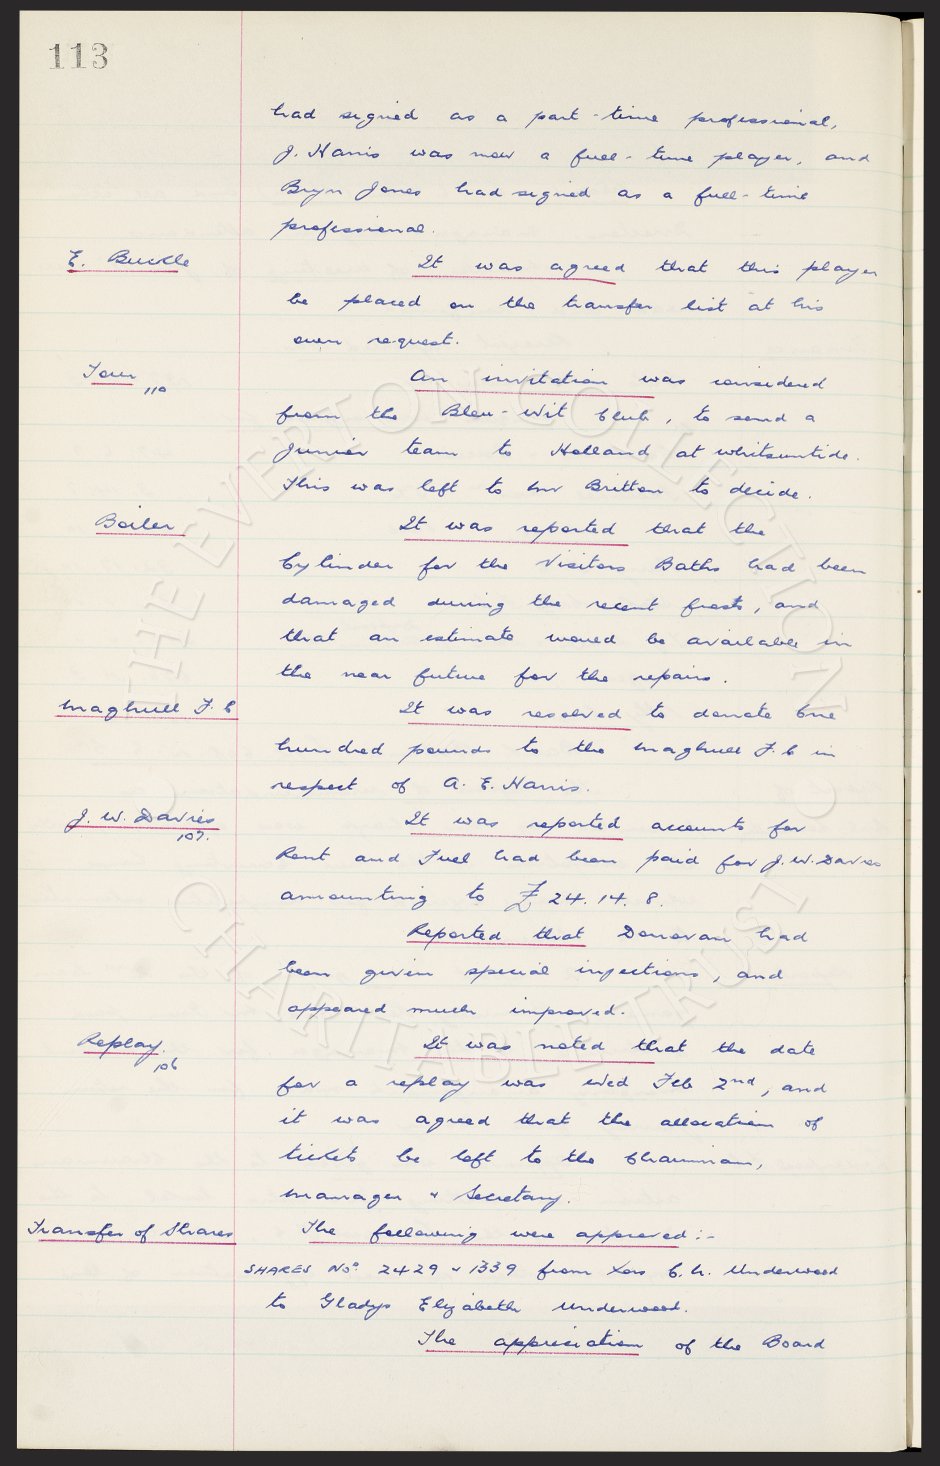 113
had signed as a part-time professional,
J. Harris was now a full-time player, and
Bryn Jones had signed as a full-time
professional.
E. Buckle
It was agreed that this player
be placed on the transfer list at his
own request.
Tour 110
An invitation was considered
from the Blau-Wit Club, to send a
Junior team to Holland at Whitsuntide.
This was left to Mr Britton to decide.
Boiler
It was reported that the
Cylinder for the Visitors Baths had been
damaged during the recent frosts, and
that an estimate would be available in
the near future for the repairs.
Maghull F. C
It was resolved to donate One
hundred pounds to the Maghull F. C in
respect of A. E. Harris.
J. W. Davies 107.
It was reported accounts for
Rent and Fuel had been paid for J. W. Davies
amounting to £24. 14. 8.
Reported that Donovan had
been given special injections, and
appeared much improved.
Replay. 106
It was noted that the date
for a replay was Wed Feb 2nd, and
it was agreed that the allocation of
tickets be left to the Chairman,
Manager & Secretary.
Transfer of Shares
The following were approved:-
SHARES Nos. 2429 & 1339 from Xors C. h. Underwood
to Gladys Elizabeth Underwood.
The appreciation of the Board
THE EVERTON COLLECTION
CHARITABLE TRUST